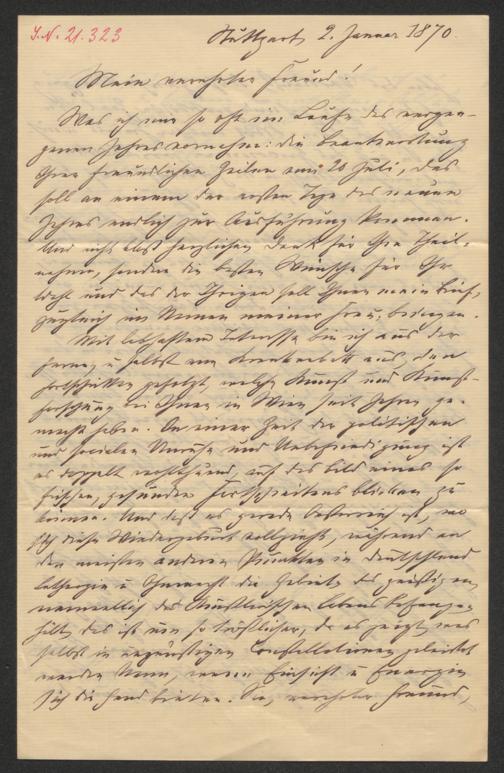 I.N. 21.323
Stuttgart, 2. Januar 1870.
Mein verehrter Freund!
Was ich mir so oft im Laufe des vergan-
genen Jahres vornahm: die Beantwortung
Ihrer freundlichen Zeilen vom 20 Juli, das
soll an einem der ersten Tage des neuen
Jahres endlich zur Ausführung kommen.
Und nicht bloß herzlichen Dank für Ihre Theil-
nahme, sondern die besten Wünsche für Ihr
Wohl und das der Ihrigen soll Ihnen mein Brief,
zugleich im Namen meiner Frau, bringen.
Mit lebhaftem Interesse bin ich aus der
Ferne, u selbst vom Krankenbett aus, den
Fortschritten gefolgt, welche Kunst und Kunst-
forschung bei Ihnen in Wien seit Jahren ge-
macht haben. In einer Zeit der politischen
und socialen Unruhe und Unbefriedigung ist
es doppelt wohlthuend, auf das Bild eines so
frischen, gesunden Fortschreitens blicken zu
können. Und daß es gerade Oesterreich ist, wo
sich diese Wiedergeburt vollzieht, während an
den meisten anderen Punkten in Deutschland
Lethargie u Ohnmacht die Gebiete des geistigen,
namentlich des künstlerischen Lebens befangen
hält, das ist um so tröstlicher, da es zeigt, was
selbst in ungünstigen Constellationen geleistet
werden kann, wenn Einsicht u Energie
sich die Hand bieten. Sie, verehrter Freund,